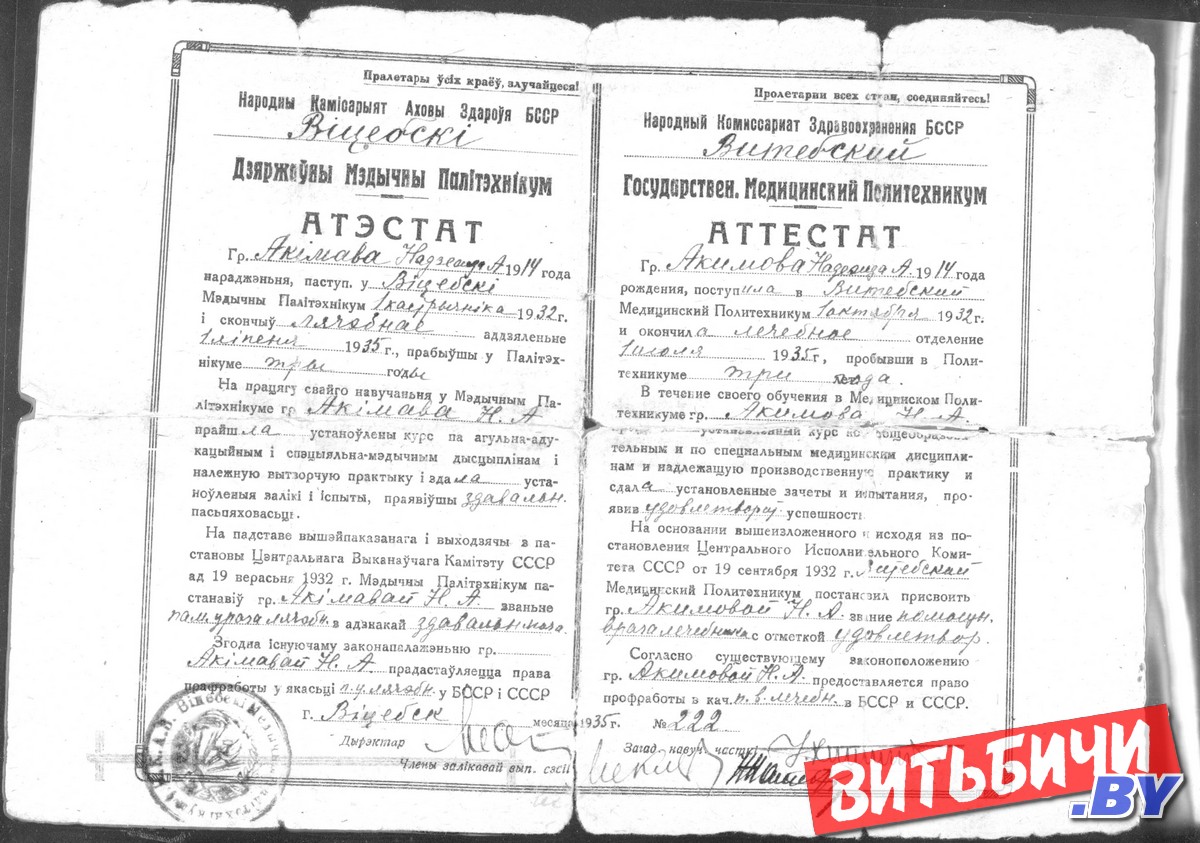 Пралетары ўсіх краёў, злучайцеся!
Народны Камісарыят Аховы Здароўя БССР
Віцебскі
Дзяржаўны Мэдычны Палітэхнікум
АТЭСТАТ
Гр. Акімава Надзежда А 1914 года
нараджэньня, паступ. у Віцебскі
Мэдычны Палітэхнікум 1 кастрычніка 1932 г.
і скончыў лячэбнае аддзяленьне
1 ліпеня 1935 г., прабыўшы у Палітэх-
нікуме тры годы
На працягу свайго навучаньня у Мэдычным Па-
літэхнікуме гр. Акімава Н. А
прайшла устаноўлены курс па агульна-аду-
кацыйным і спэцыяльна-мэдычным дысцыплінам і
належную вытворчую практыку і здала уста-
ноўленыя залікі і іспыты, праявіўшы здавальн.
пасьпяховасьць.
На падставе вышэйпаказанага і выходзячы з па-
становы Цэнтральнага Выканаўчага Камітэту СССР
ад 19 верасьня 1932 г. Мэдычны Палітэхнікум па-
станавіў гр. Акімавай Н. А. званьне
пам. урача лячэбн. з адзнакай
Згодна існуючаму законапалажэньню гр.
Акімавай Н. А прадастаўляецца права
прафработы у якасьці п. у. лячэбн. у БССР і СССР
г. Віцебск месяца 1935 г.
Дырэктар
Члены залікавай вып. сэсіі
Пролетарии всех стран, соединяйтесь!
Народный Комиссариат Здравоохранения БССР
Витебский
Государствен. Медицинский Политехникум
АТТЕСТАТ
Гр. Акимова Надежда А. 1914 года
рождения, поступила в Витебский
Медицинский Политехникум 1 октября 1932 г.
и окончила лечебное отделение
1 июля 1935 г, пробывши в Поли-
техникуме три года.
В течение своего обучения в Медицинском Поли-
техникуме гр. Акимова Н. А.
установленный курс по общеобразова
тельным и по специальным медицинским дисципли-
нам и надлежащую производственную практику и
сдала установленные зачеты и испытания, про-
явив удовлетворит. успешность
На основании вышеизложенного и исходя из по-
становления Центрального Исполнительного Коми-
тета СССР от 19 сентября 1932 г. Витебский
Медицинский Политехникум постановил присвоить
гр. Акимовой Н. А звание помощн.
врача лечебника с отметкой удовлетвор.
Согласно существующему законоположению
гр. Акимовой Н. А. предоставляется право
профработы в кач. п. в. лечебн. в БССР и СССР.
№ 222
Загад. навуч. часткі
ВИТЬБИЧИ
.BY